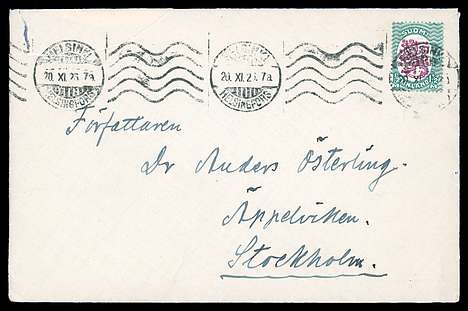 HELSINKI HELSINKI SUOMI
20.XI.25.7a 20.XI.25.7a
HELSINGFORS HELSINGFORS FINLAND
Författaren
Dr Anders Österling.
Äppelviken.
Stockholm.